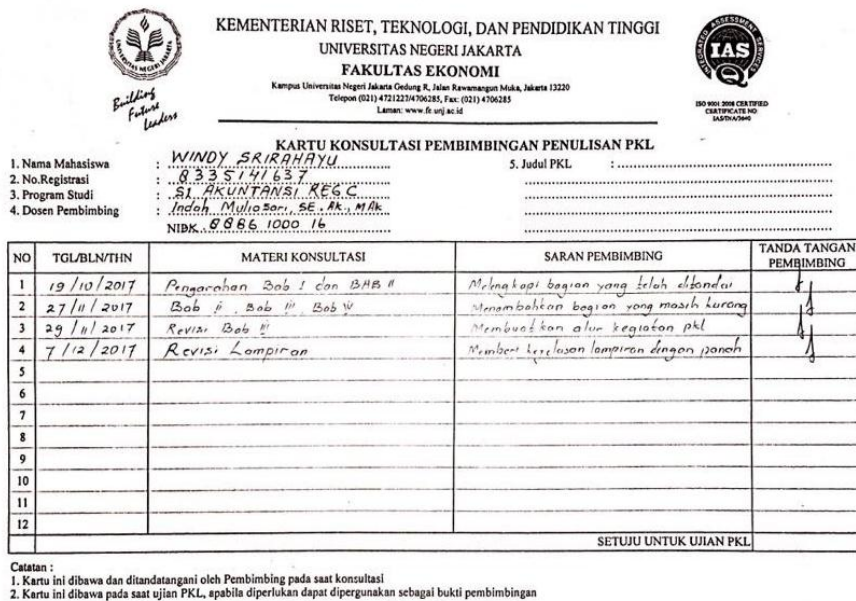 KEMENTERIAN RISET, TEKNOLOGI, DAN PENDIDIKAN TINGGI
UNIVERSITAS NEGERI JAKARTA
FAKULTAS EKONOMI
Kampus Universitas Negeri Jakarta Gedung R, Jalan Rawamangun Muka, Jakarta 13220
Telepon (021) 4721227/4706285, Fax: (021) 4706285
Laman: www.fe.unj.ac.id
Building
Future
Leaders
IAS
ISO 9001 2008 CERTIFIED
CERTIFICATE NO
KARTU KONSULTASI PEMBIMBINGAN PENULISAN PKL
1. Nama Mahasiswa : WINDY SRIRAHAYU
2. No.Registrasi : 8335141637
3. Program Studi : S1 AKUNTANSI REG C
4. Dosen Pembimbing : Indah Muliasari, SE. Ak., MAk
NIDK. 8886 1000 16
5. Judul PKL :
NO TGL/BLN/THN MATERI KONSULTASI SARAN PEMBIMBING TANDA TANGAN PEMBIMBING
1 19/10/2017 Pengarahan Bab I dan BAB II Melengkapi bagian yang telah ditandai
2 27/11/2017 Bab II, Bab III, Bab IV Menambahkan bagian yang masih kurang
3 29/11/2017 Revisi Bab III Membuatkan alur kegiatan pkl
4 7/12/2017 Revisi Lampiran lampiran dengan panah
5
6
7
8
9
10
11
12
SETUJU UNTUK UJIAN PKL
Catatan :
1. Kartu ini dibawa dan ditandatangani oleh Pembimbing pada saat konsultasi
2. Kartu ini dibawa pada saat ujian PKL, apabila diperlukan dapat dipergunakan sebagai bukti pembimbingan